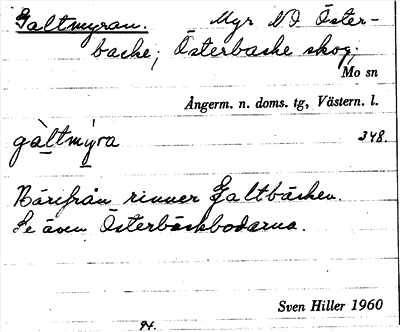 Galtmyran. Myr NO Öster-
backe; Österbacke skog;
Mo sn
Ångerm. n. doms. tg, Västern. l.
gàltmy̆ra 348.
Härifrån rinner Galtbäcken.
Se även Österbäckbodarna.
Sven Hiller 1960
94.